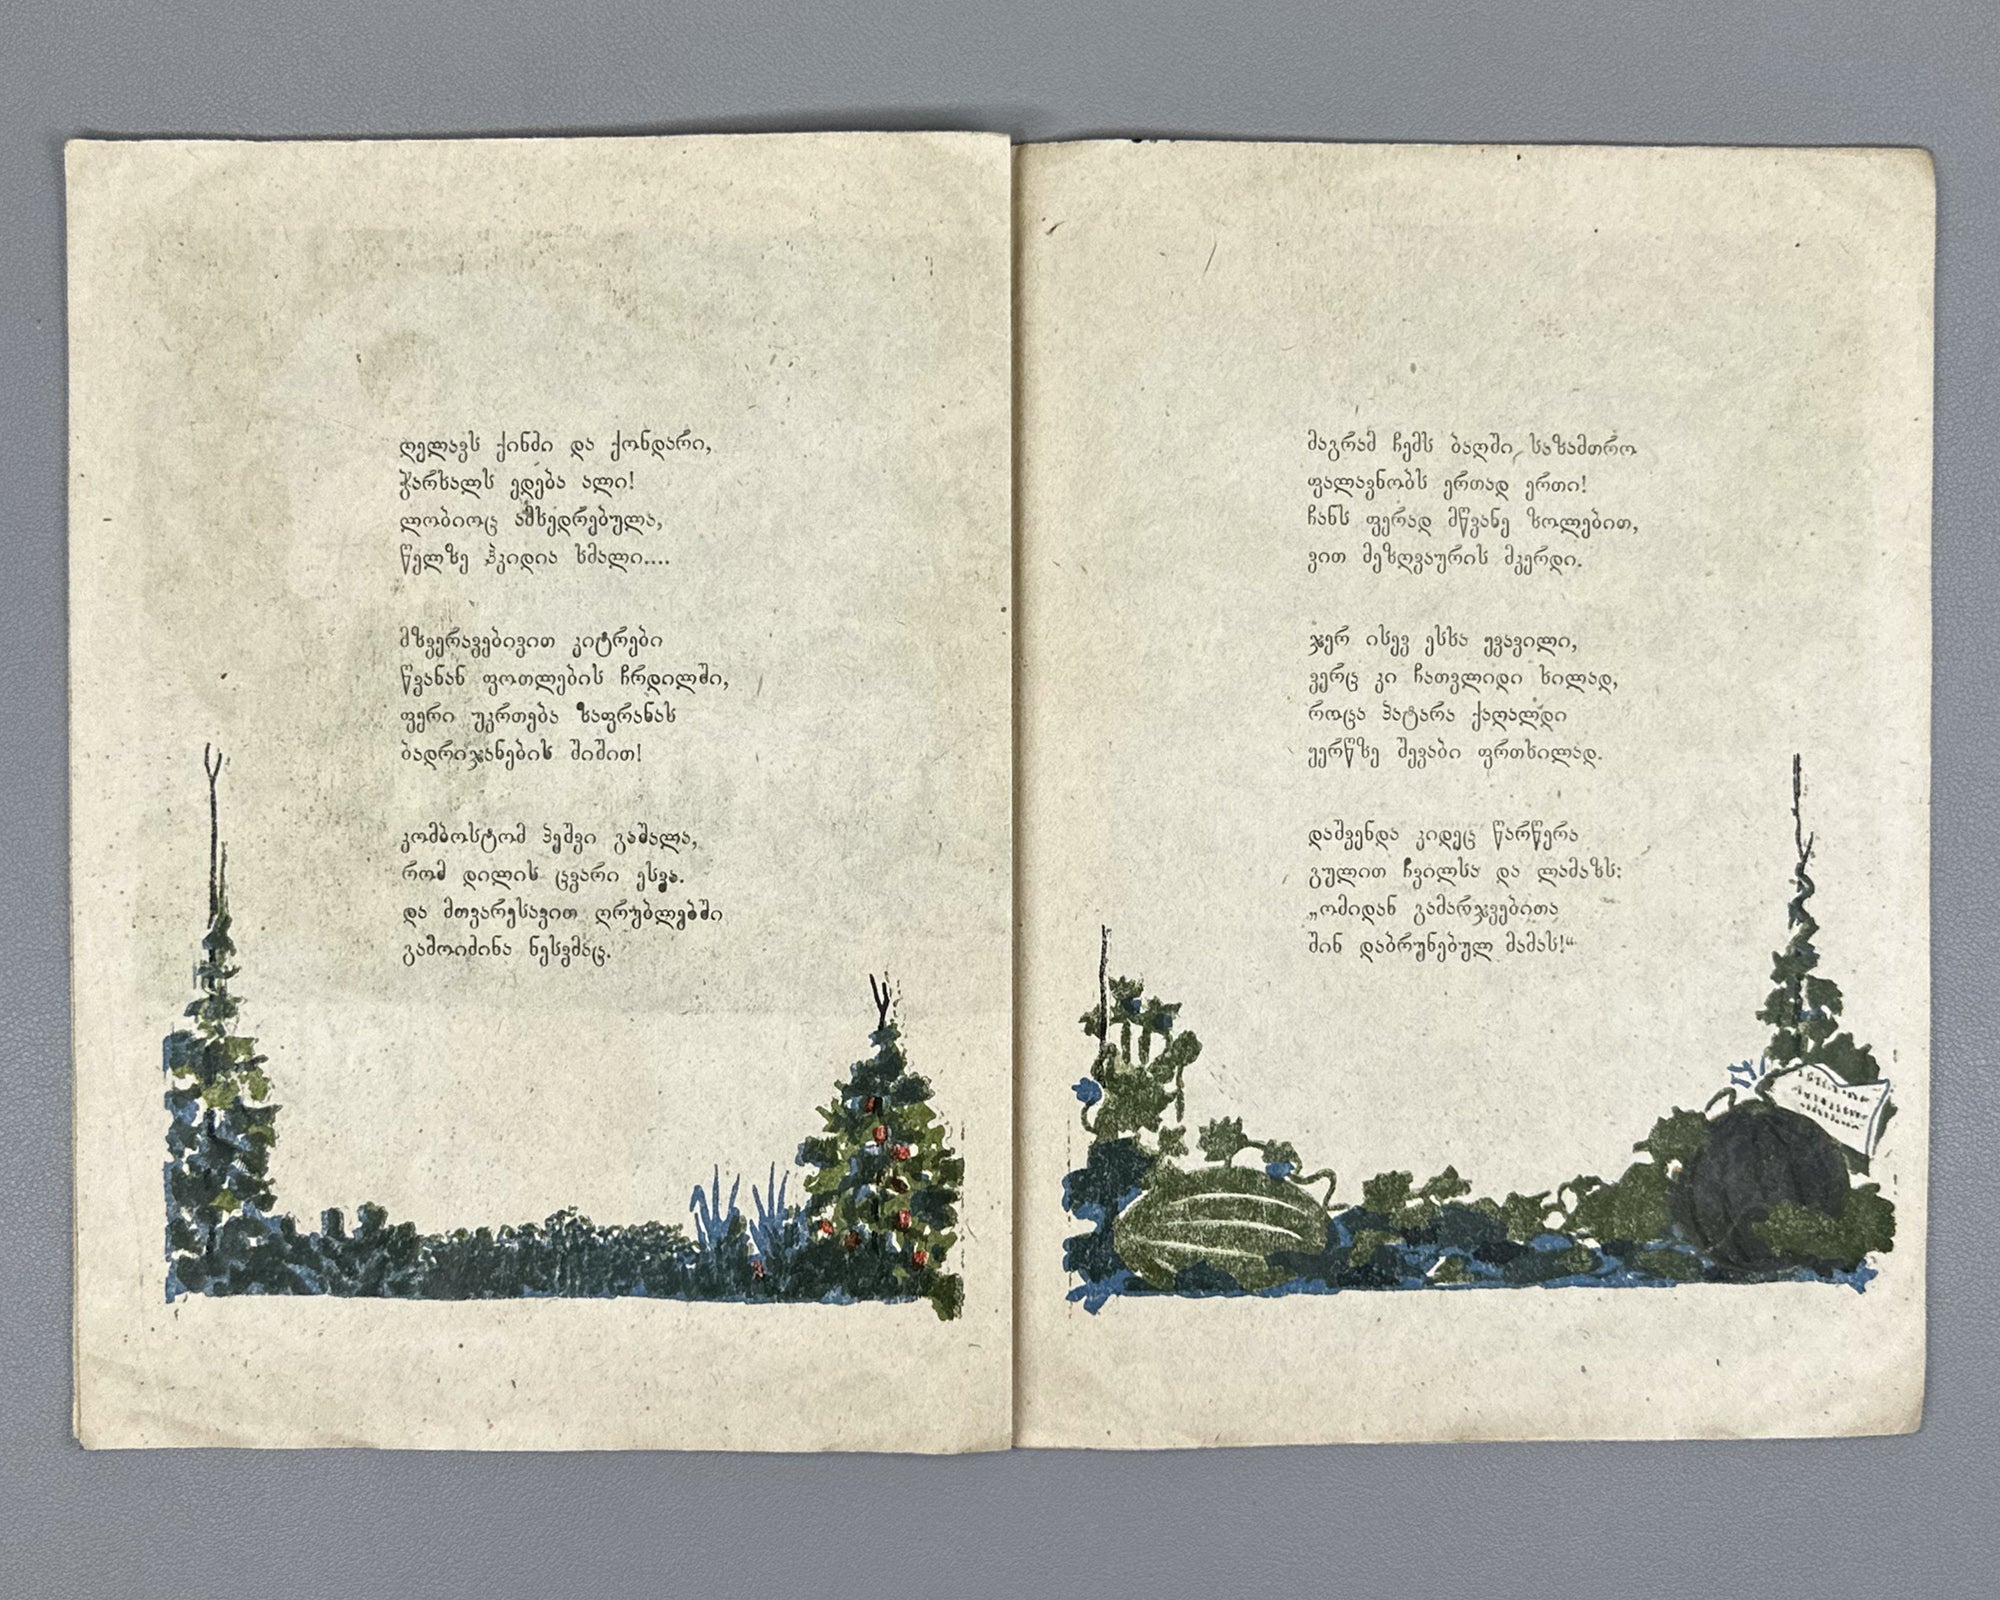 ღელავს ქინძი და ქონდარი,
ჭარხალს ედება ალი!
ლობიოც ამხედრებულა,
წელზე ჰკიდია ხმალი....
მზვერავებივით კიტრები
წვანან ფოთლების ჩრდილში,
ფერი უკრთება ზაფრანას
ბადრიჯანების შიშით!
კომბოსტომ პეშვი გაშალა,
რომ დილის ცვარი ესვა.
და მთვარესავით ღრუბლებში
გამოიძინა ნესვმაც.
მაგრამ ჩემს ბაღში საზამთრო
ფალავნობს ერთად ერთი!
ჩანს ფერად მწვანე ზოლებით,
ვით მეზღვაურის მკერდი.
ჯერ ისევ ესხა ყვავილი,
ვერც კი ჩათვლიდი ხილად,
როცა პატარა ქაღალდი
ყერწზე შევაბი ფრთხილად.
დაშვენდა კიდეც წარწერა
გულით ჩვილსა და ლამაზს:
„ომიდან გამარჯვებითა
შინ დაბრუნებულ მამას!“